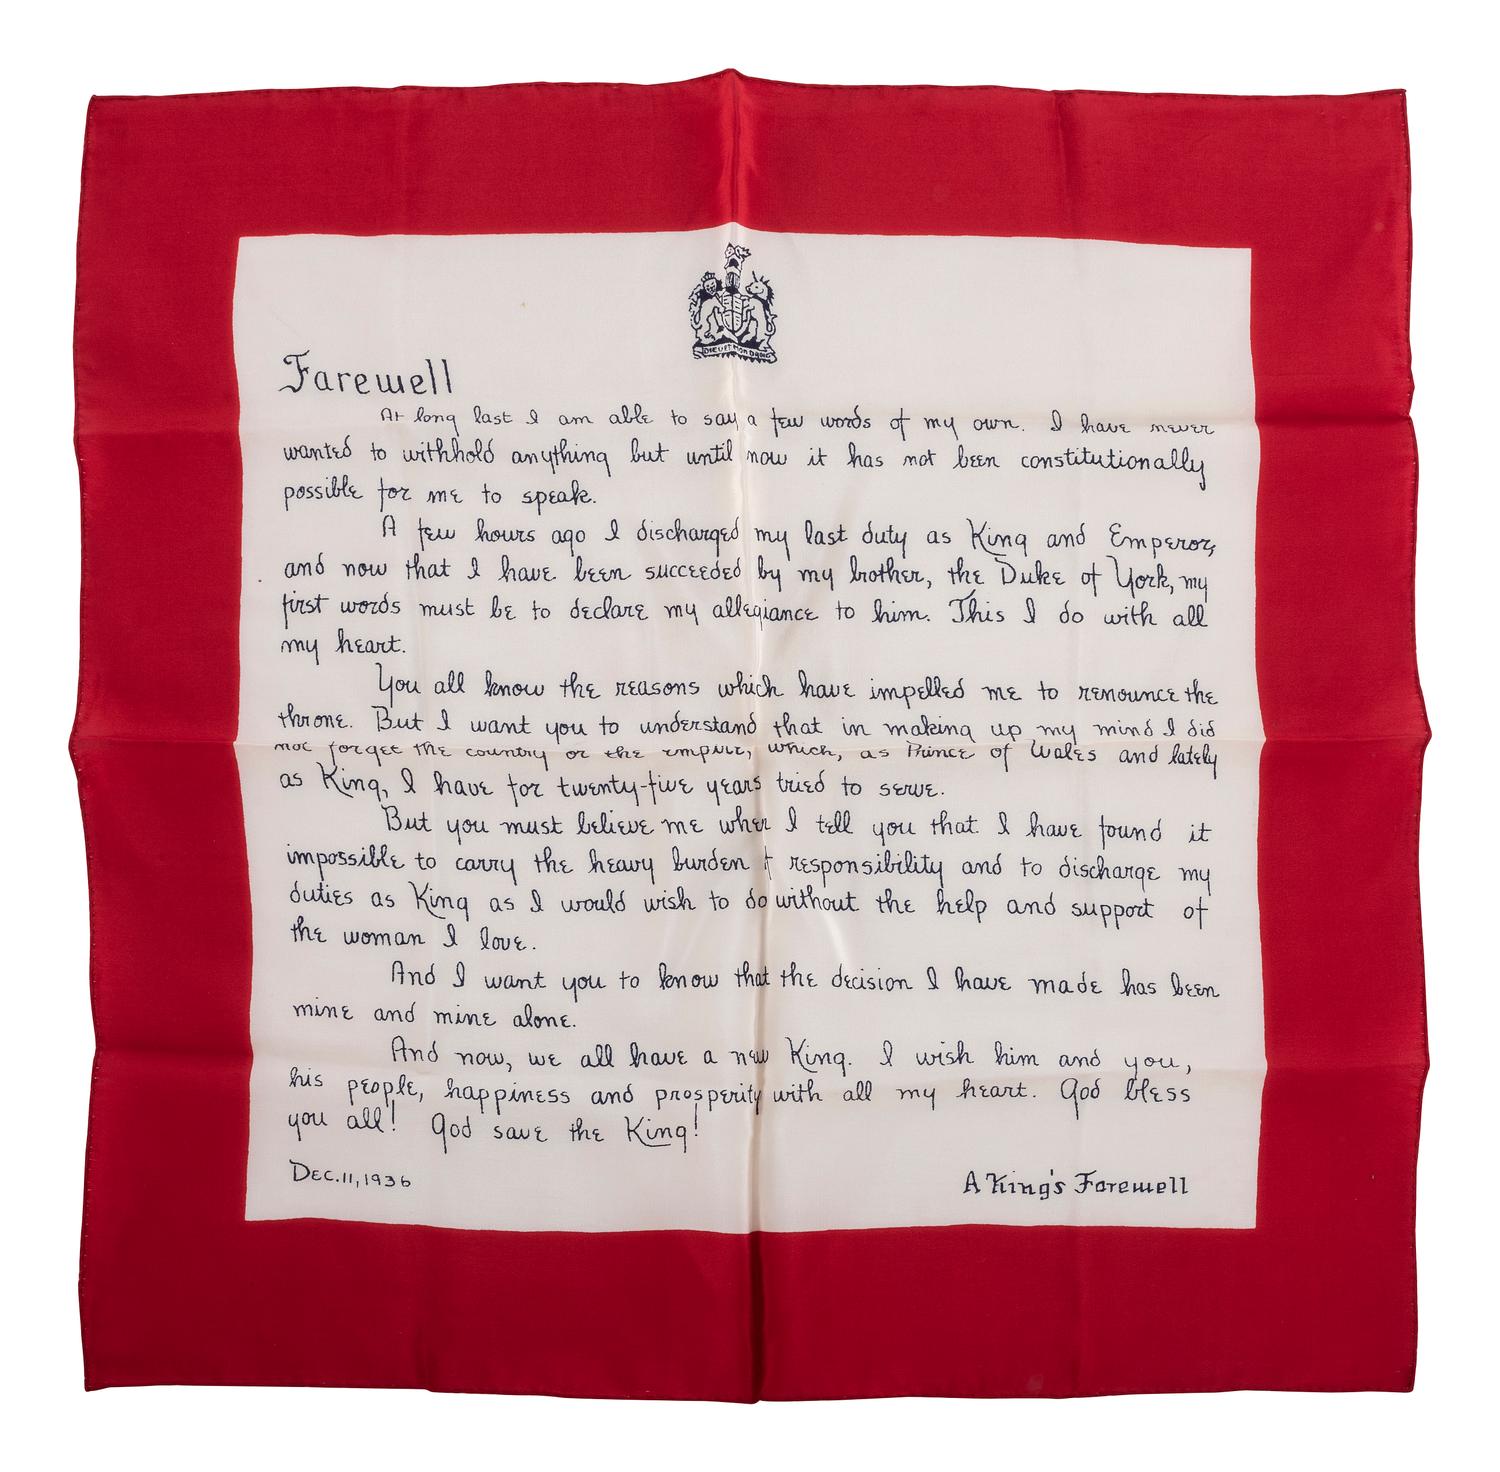 DIEU ET MON DROIT
Farewell
At long last I am able to say a few words of my own. I have never
wanted to withhold anything but until now it has not been constitutionally
possible for me to speak.
A few hours ago I discharged my last duty as King and Emperor,
and now that I have been succeeded by my brother, the Duke of York, my
first words must be to declare my allegiance to him. This I do with all
my heart.
You all know the reasons which have impelled me to renounce the
throne. But I want you to understand that in making up my mind I did
not forget the country or the empire, which, as Prince of Wales and lately
as King, I have for twenty-five years tried to serve.
But you must believe me when I tell you that I have found it
impossible to carry the heavy burden responsibility and to discharge my
duties as King as I would wish to do without the help and support of
the woman I love.
And I want you to know that the decision I have made has been
mine and mine alone.
And now, we all have a new King. I wish him and you,
his people, happiness and prosperity with all my heart. God bless
you all! God save the King!
DEC. 11, 1936
A King's Farewell